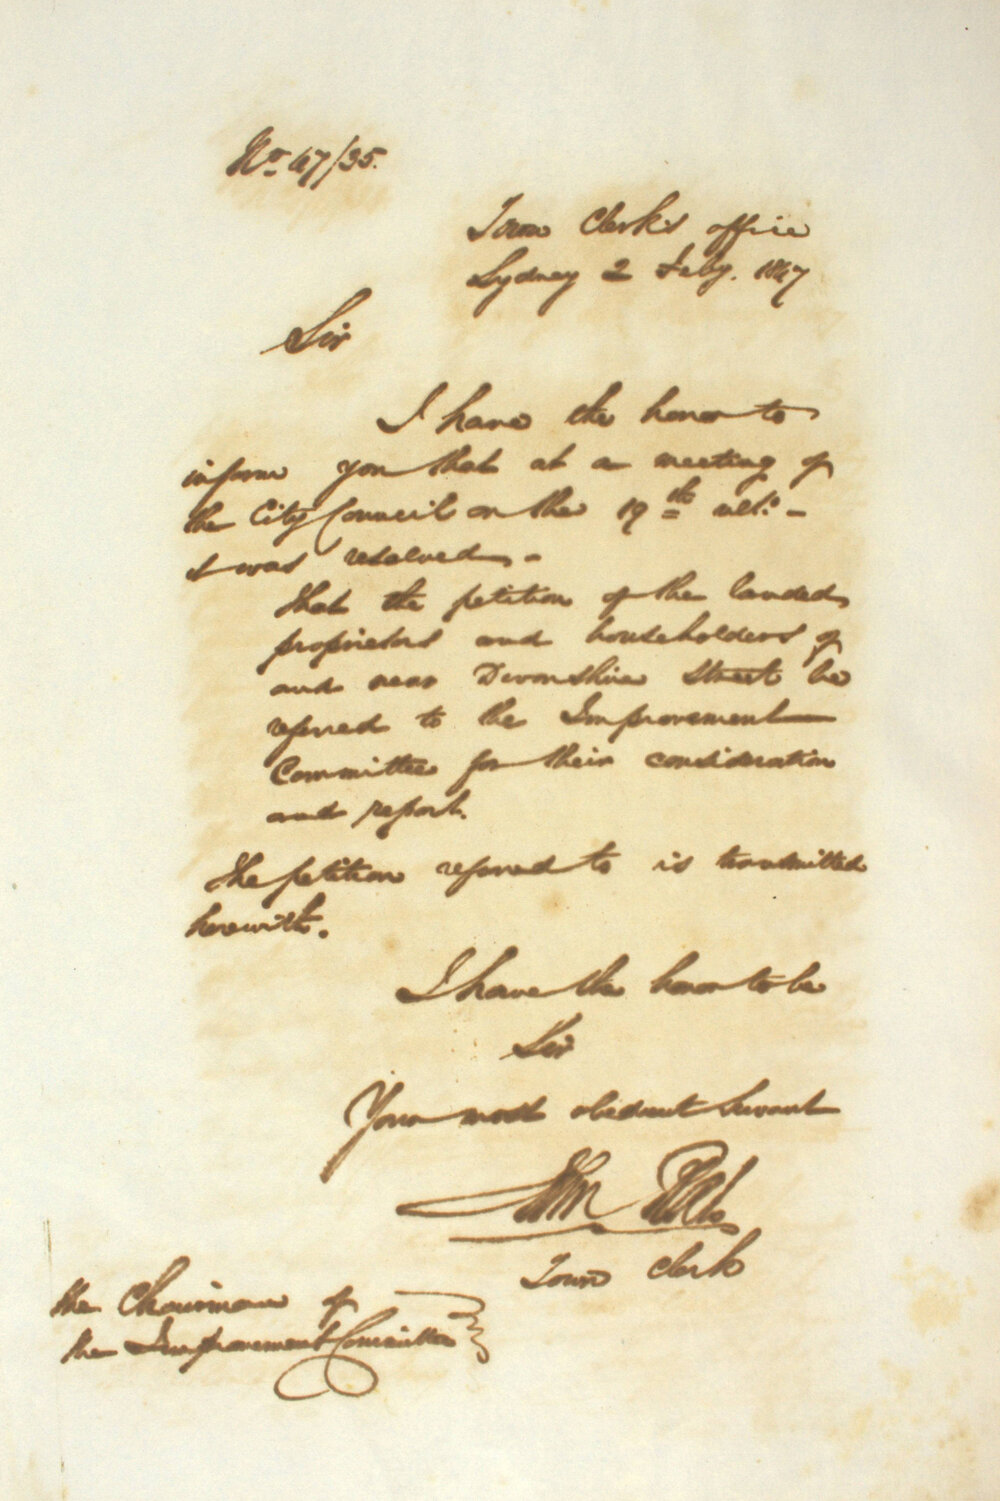 No. 47/35.
Town Clerk's office
Sydney 2 Feby. 1847
Sir
I have the honor to
inform you that at a meeting of
the City Council on the 19th ulto. -
it was resolved. -
That the petition of the landed
proprietors and householders of
and near Devonshire Street be
referred to the Improvement
Committee for their consideration
and report.
The petition referred to is transmitted
herewith.
I have the honor to be
Sir
Your most obedient Servant
Town Clerk
The Chairman of
the Improvement Committee